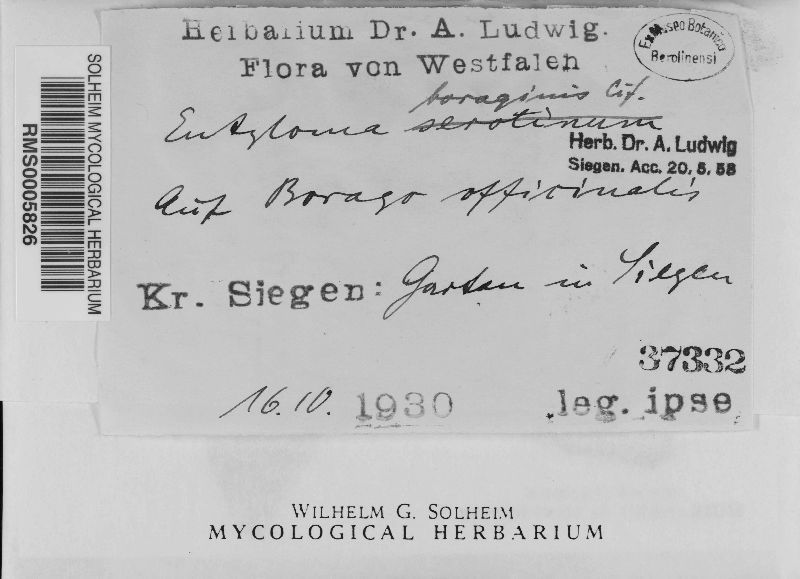 Herbarium Dr. A. Ludwig.
Flora von Westfalen
Ex Museo Botanico
Berolinensi
boraginis Cif.
Entyloma serotinum
Herb. Dr. A. Ludwig
Siegen. Acc. 20. 5. 58
Auf Borago officinalis
Kr. Siegen: Garten in Siegen
37332
16.10. 1930 leg. ipse
SOLHEIM MYCOLOGICAL HERBARIUM
RMS0005826
WILHELM G. SOLHEIM
MYCOLOGICAL HERBARIUM